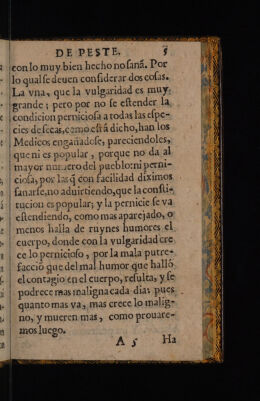 DE PESTE. 5
con lo muy bien hecho no sanã. Por
lo qual se deuen considerar dos cosas.
La vna, que la vulgaridad es muy
grande; pero por no se estender la
condicion perniciosa a todas las espe-
cies de secas, como està dicho, han los
Medicos engañadose, pareciendoles,
que ni es popular, porque no da al
mayor numero del pueblo: ni perni-
ciosa, por las q̃ con facilidad diximos
sanarse, no aduirtiendo, que la consti-
tucion es popular; y la pernicie se va
estendiendo, como mas aparejado, o
menos halla de ruynes humores el
cuerpo, donde con la vulgaridad cre
ce lo pernicioso, por la mala putre-
facciõ que del mal humor que hallò
el contagio en el cuerpo, resulta, y se
podrece mas maligna cada dia: pues
quanto mas va, mas crece lo malig-
no, y mueren mas, como prouare-
mos luego.
A 5 Ha